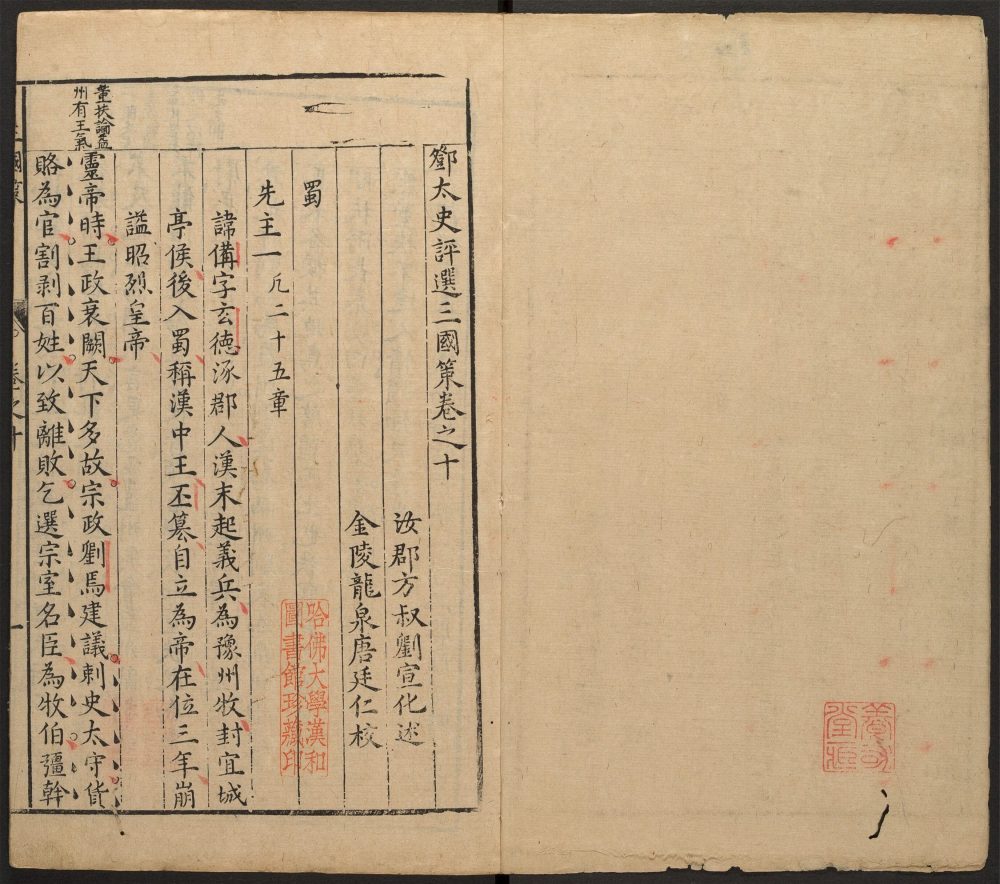 鄧太史評選三國策卷之十
汝郡方叔劉宣化述
金陵龍泉唐廷仁校
蜀
先主一凡二十五章
諱備字玄德涿郡人漢末起義兵為豫州牧封宜城
亭侯後入蜀稱漢中王丕篡自立為帝在位三年崩
謚昭烈皇帝
董扶論益
州有王氣
靈帝時王政衰闕天下多故宗政劉焉建議刺史太守貨
賂為官割剥百姓以致離敗乞選宗室名臣為牧伯彊幹
卷之十
一
哈佛大學漢和
圖書館珍藏印